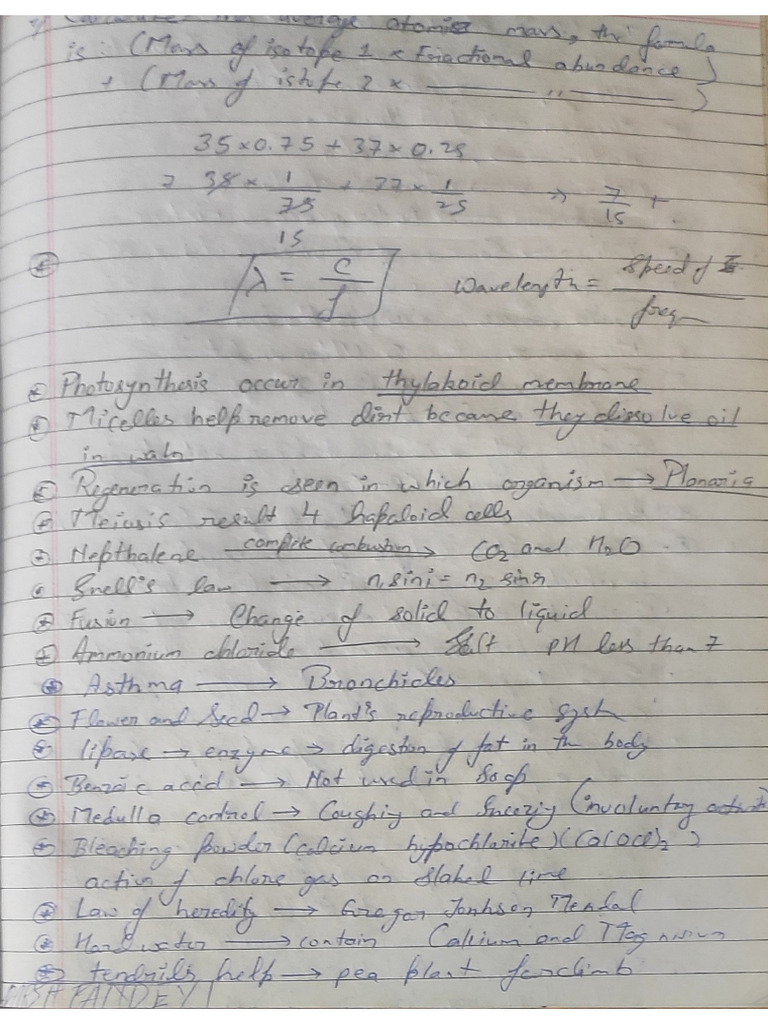 average atomic mass, the formula
is : (Mass of isotope 1 × Fractional abundance)
+ (Mass of istope 2 × ——— ,, ———)
35 × 0.75 + 37 × 0.25
38 × 1/75 + 77 × 1/25 ⇒ 7/15 +
15
λ = c/f Wavelength = Speed of / freq
Photosynthesis occur in thylakoid membrane
Micelles help remove dirt became they dissolve oil
in watr
Regeneration is seen in which organism → Planaria
Meiosis result 4 hapaloid cells
Nepthalene complete combustion → CO2 and H2O
Snell's law → n1 sini = n2 sinr
Fusion → Change of solid to liquid
Ammonium chloride → Salt pH less than 7
Asthma → Bronchicles
Flower and Seed → Plant's reproductive systm
lipase → enzyme → digestion of fat in the body
Benzoic acid → Not used in Soap
Medulla control → Coughing and Sneezing (involuntary
Bleaching Powder (calcium hypochlorite) (Ca(OCl)2)
action of chlorine gas on Slaked lime
Law of heredity → Gregor Jonhson Mendal
Hard water → contain Calcium and Magnisium
tendrils help → pea plant for climb
PANDEY